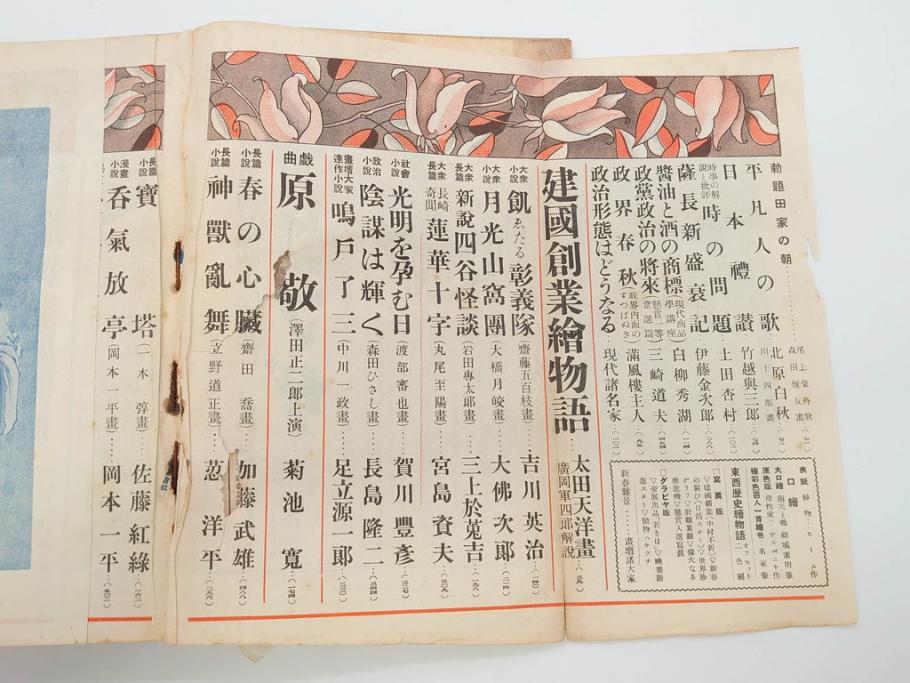 勅題田家の朝
尾上柴舟歌
森田恒友畫
平凡人の歌
北原白秋
川上四郎畫
日本禮讃
竹越與三郎
時事の解説と批評
時の問題
土田杏村
薩長新盛衰記
伊藤金次郎
醬油と酒の商標
現代商品學講座
白柳秀湖
政黨政治の將來
懸賞一等當選篇
三崎道夫
政界春秋
政界内面のすつぱぬき
滿風樓主人
政治形態はどうなる
現代諸名家
表紙 靜物
口繪
大口繪
原色版 母性愛
極彩色百人一首繪卷 名家筆
東西歴史繪物語
オフセット二色刷
寫眞版
グラビヤ版
新春雜景
畫壇諸大家
建國創業繪物語
太田天洋畫
廣岡軍四郎解說
大衆小說
飢ゑたる彰義隊
(齋藤五百枝畫)
吉川英治
大衆小說
月光山窩團
(大橋月皎畫)
大佛次郎
大衆小說
新說四谷怪談
(岩田專太郎畫)
三上於菟吉
大衆長篇
長崎奇聞
蓮華十字
(丸尾至陽畫)
宮島資夫
社會小說
光明を孕む日
(渡部審也畫)
賀川豐彥
政治小說
陰謀は輝く
(森田ひさし畫)
長島隆二
畫壇大家連作小說
鳴戶了三
(中川一政畫)
足立源一郎
戲曲
原敬
(澤田正二郎上演)
菊池寬
長篇小說
春の心臟
(齋田喬畫)
加藤武雄
長篇小說
神獸亂舞
(立野道正畫)
葱洋平
長篇小說
寶塔
(一木弴畫)
佐藤紅綠
漫畫小說
呑氣放亭
(岡本一平畫)
岡本一平